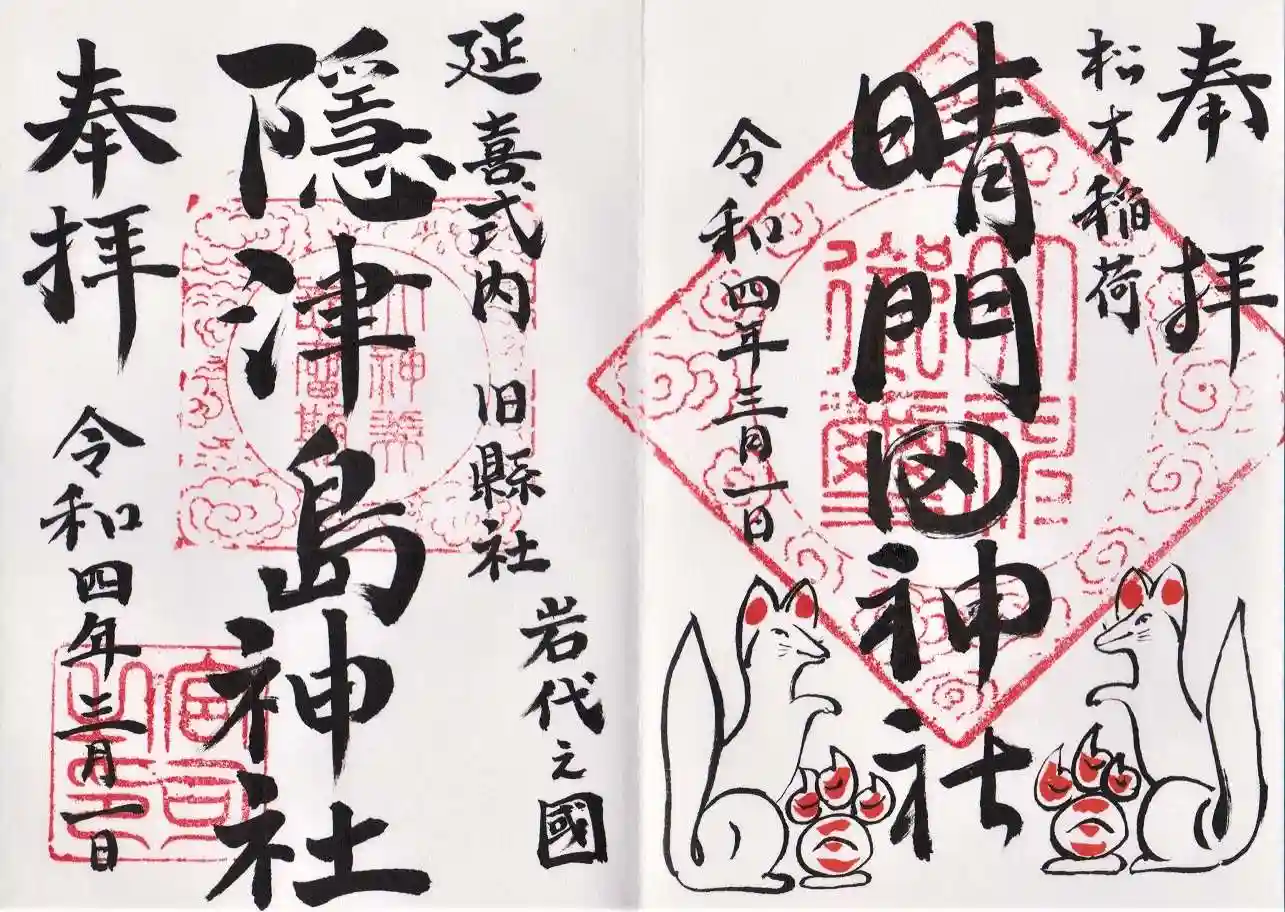 奉拝
松木稲荷
晴門田神社
令和四年三月一日
岩代之國
延喜式内 旧縣社
隱津島神社
奉拝
令和四年三月一日
宮司之印